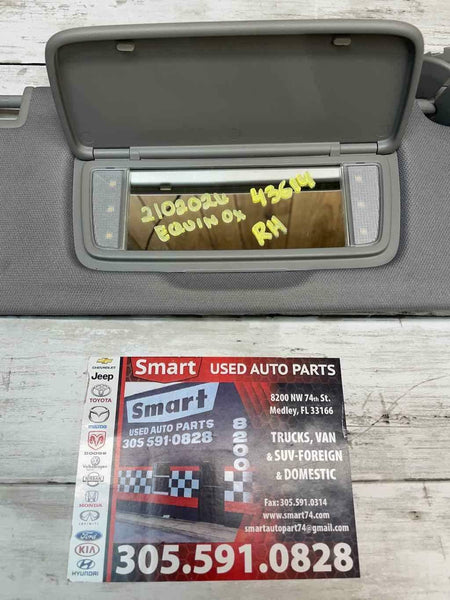 2102024
EQUINOX
43614
RH
Smart USED AUTO PARTS
8200 NW 74th St.
Medley, FL 33166
Smart
USED AUTO PARTS
305 591-0828
8200
TRUCKS, VAN
& SUV-FOREIGN
& DOMESTIC
Fax: 305.591.0314
www.smart74.com
smartautopart74@gmail.com
305.591.0828
CHEVROLET
Jeep
TOYOTA
mazda
DODGE
Volkswagen
NISSAN
HONDA
INFINITI
Ford
KIA
HYUNDAI